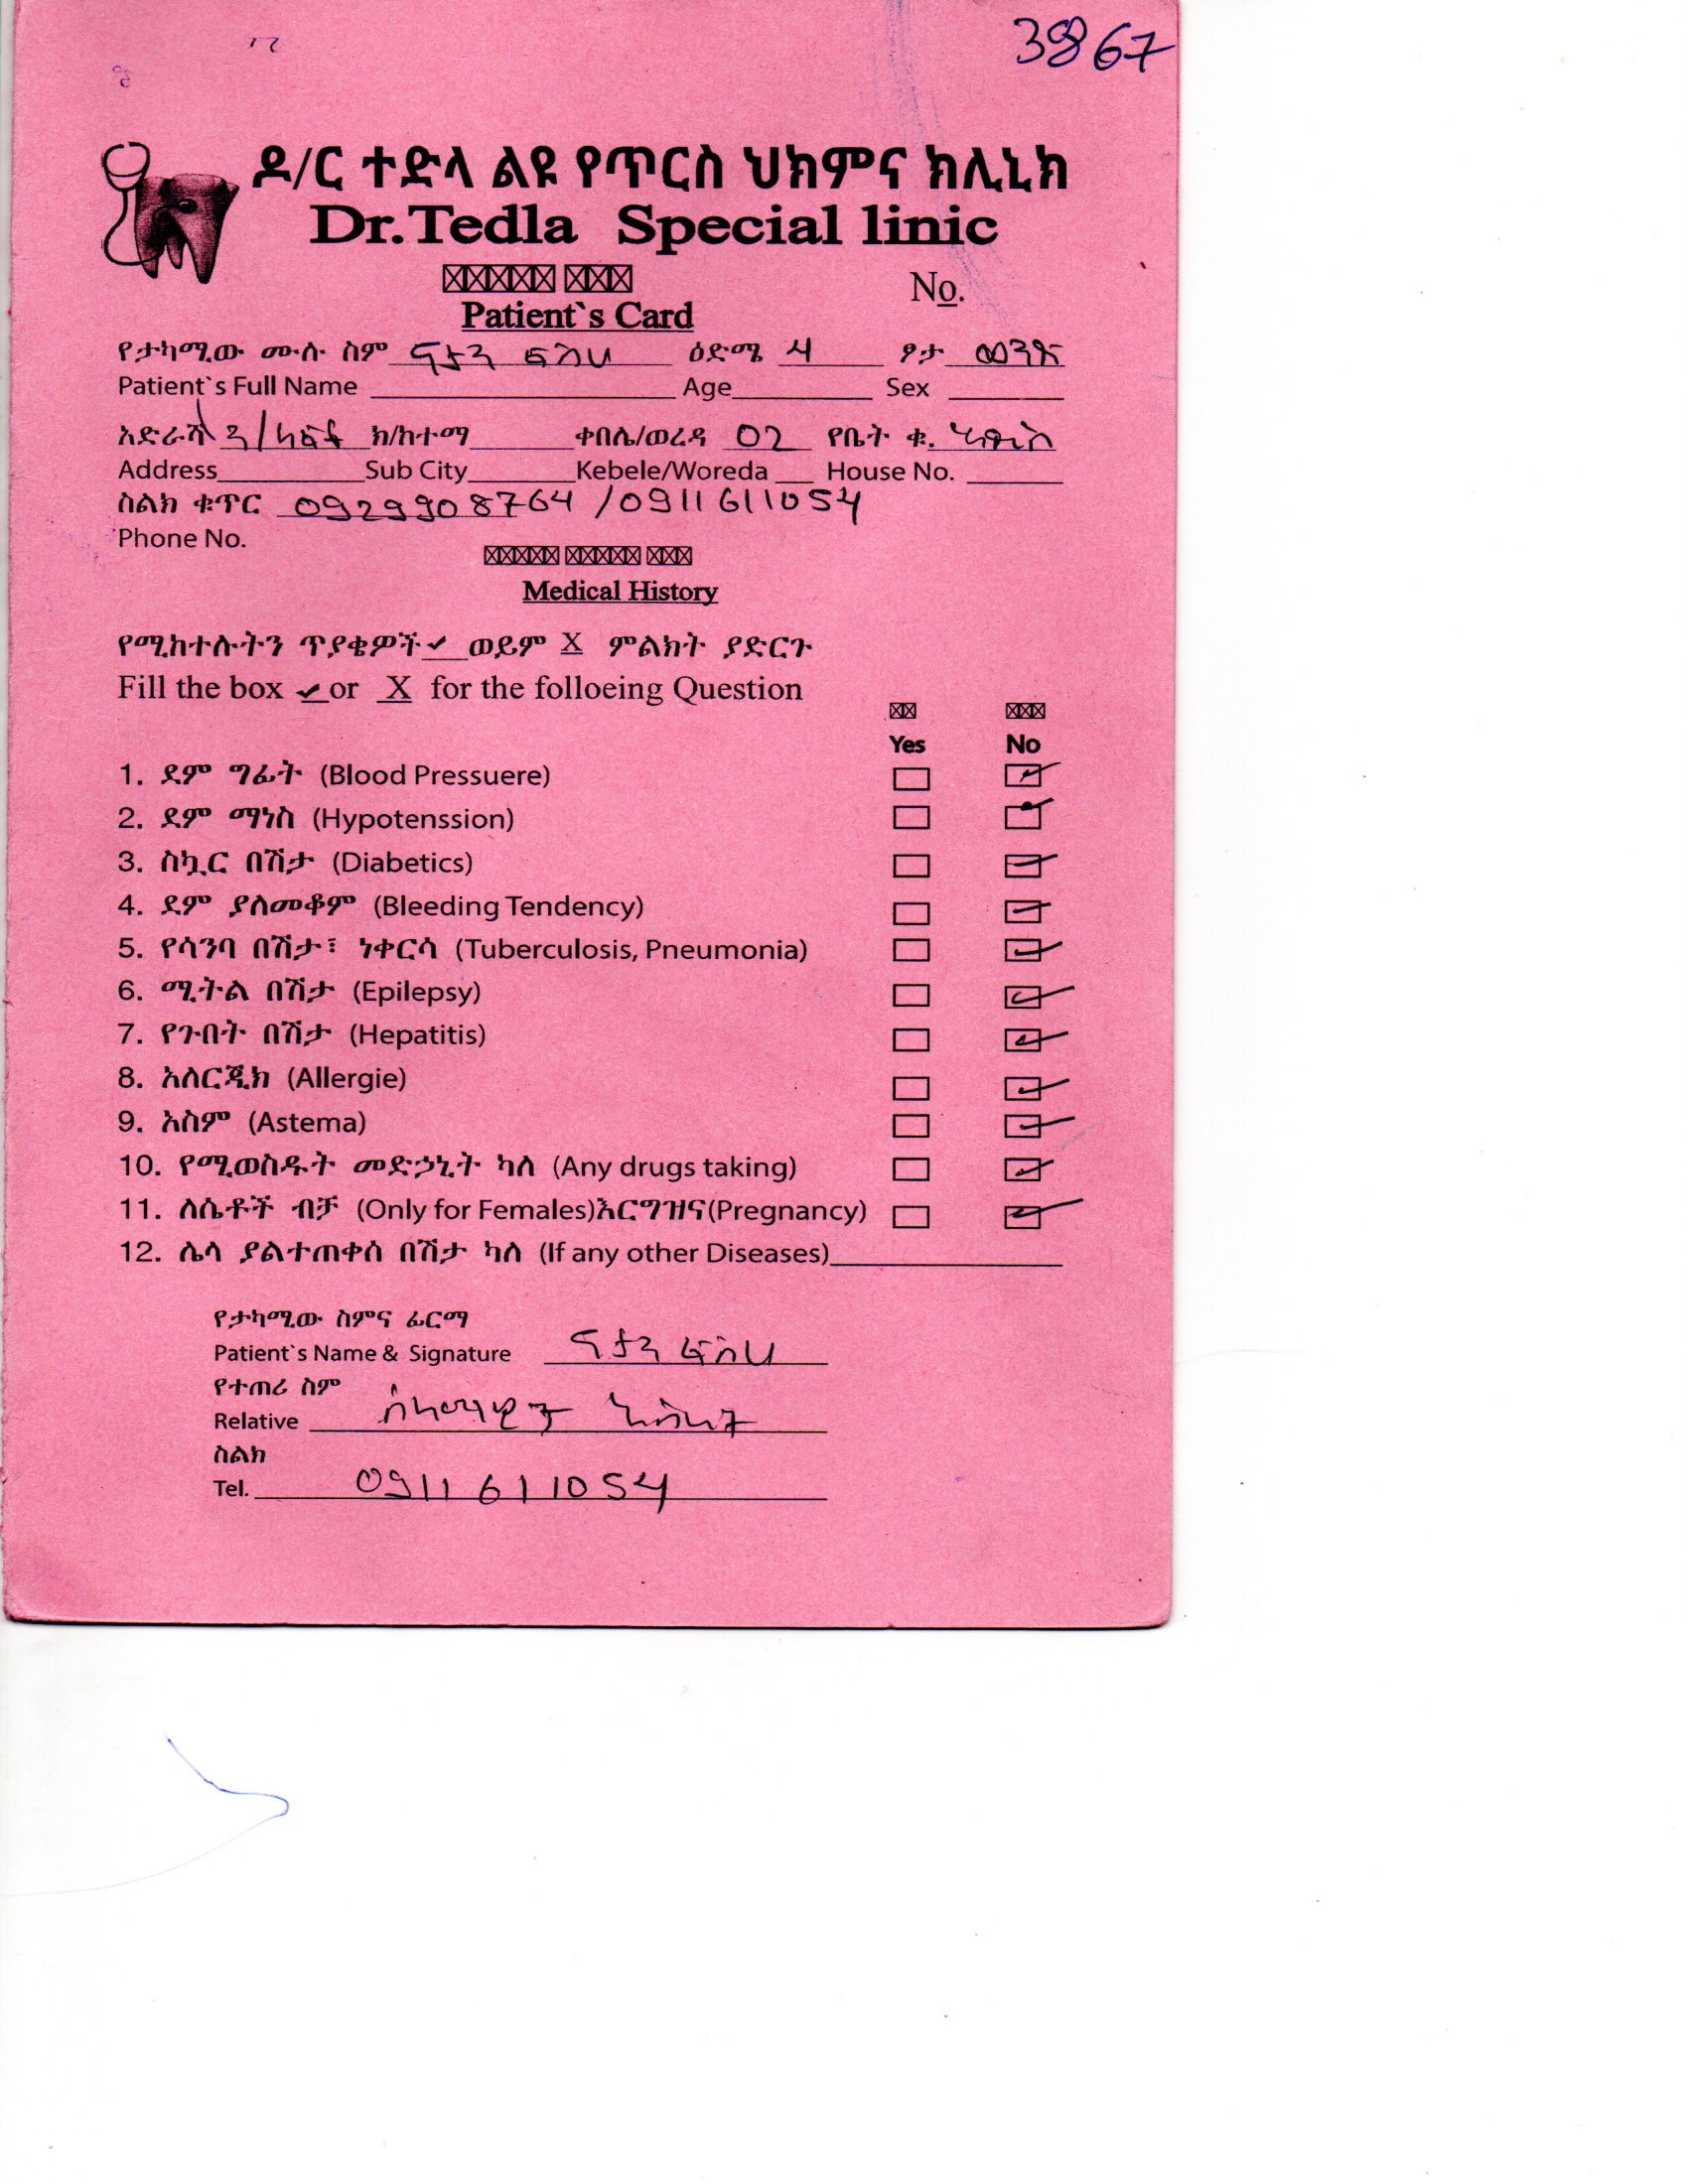 3867
ዶ/ር ተድላ ልዩ የጥርስ ህክምና ክሊኒክ
Dr.Tedla Special linic
No.
Patient`s Card
የታካሚው ሙሉ ስም ናታን ፍስሀ ዕድሜ 4 ፆታ ወንድ
Patient`s Full Name Age Sex
አድራሻ ን/ላፍቶ ክ/ከተማ ቀበሌ/ወረዳ 02 የቤት ቁ. አዲስ
Address Sub City Kebele/Woreda House No.
ስልክ ቁጥር 0929908764 /0911611054
Phone No.
Medical History
የሚከተሉትን ጥያቄዎች ✓ ወይም X ምልክት ያድርጉ
Fill the box ✓ or X for the folloeing Question
Yes No
1. ደም ግፊት (Blood Pressuere)
2. ደም ማነስ (Hypotenssion)
3. ስኳር በሽታ (Diabetics)
4. ደም ያለመቆም (Bleeding Tendency)
5. የሳንባ በሽታ፣ ነቀርሳ (Tuberculosis, Pneumonia)
6. ሚትል በሽታ (Epilepsy)
7. የጉበት በሽታ (Hepatitis)
8. አለርጂክ (Allergie)
9. አስም (Astema)
10. የሚወስዱት መድኃኒት ካለ (Any drugs taking)
11. ለሴቶች ብቻ (Only for Females)እርግዝና(Pregnancy)
12. ሌላ ያልተጠቀሰ በሽታ ካለ (If any other Diseases)
የታካሚው ስምና ፊርማ
Patient`s Name & Signature ናታን ፍስሀ
የተጠሪ ስም
Relative ሰላማዊት
ስልክ
Tel. 0911611054